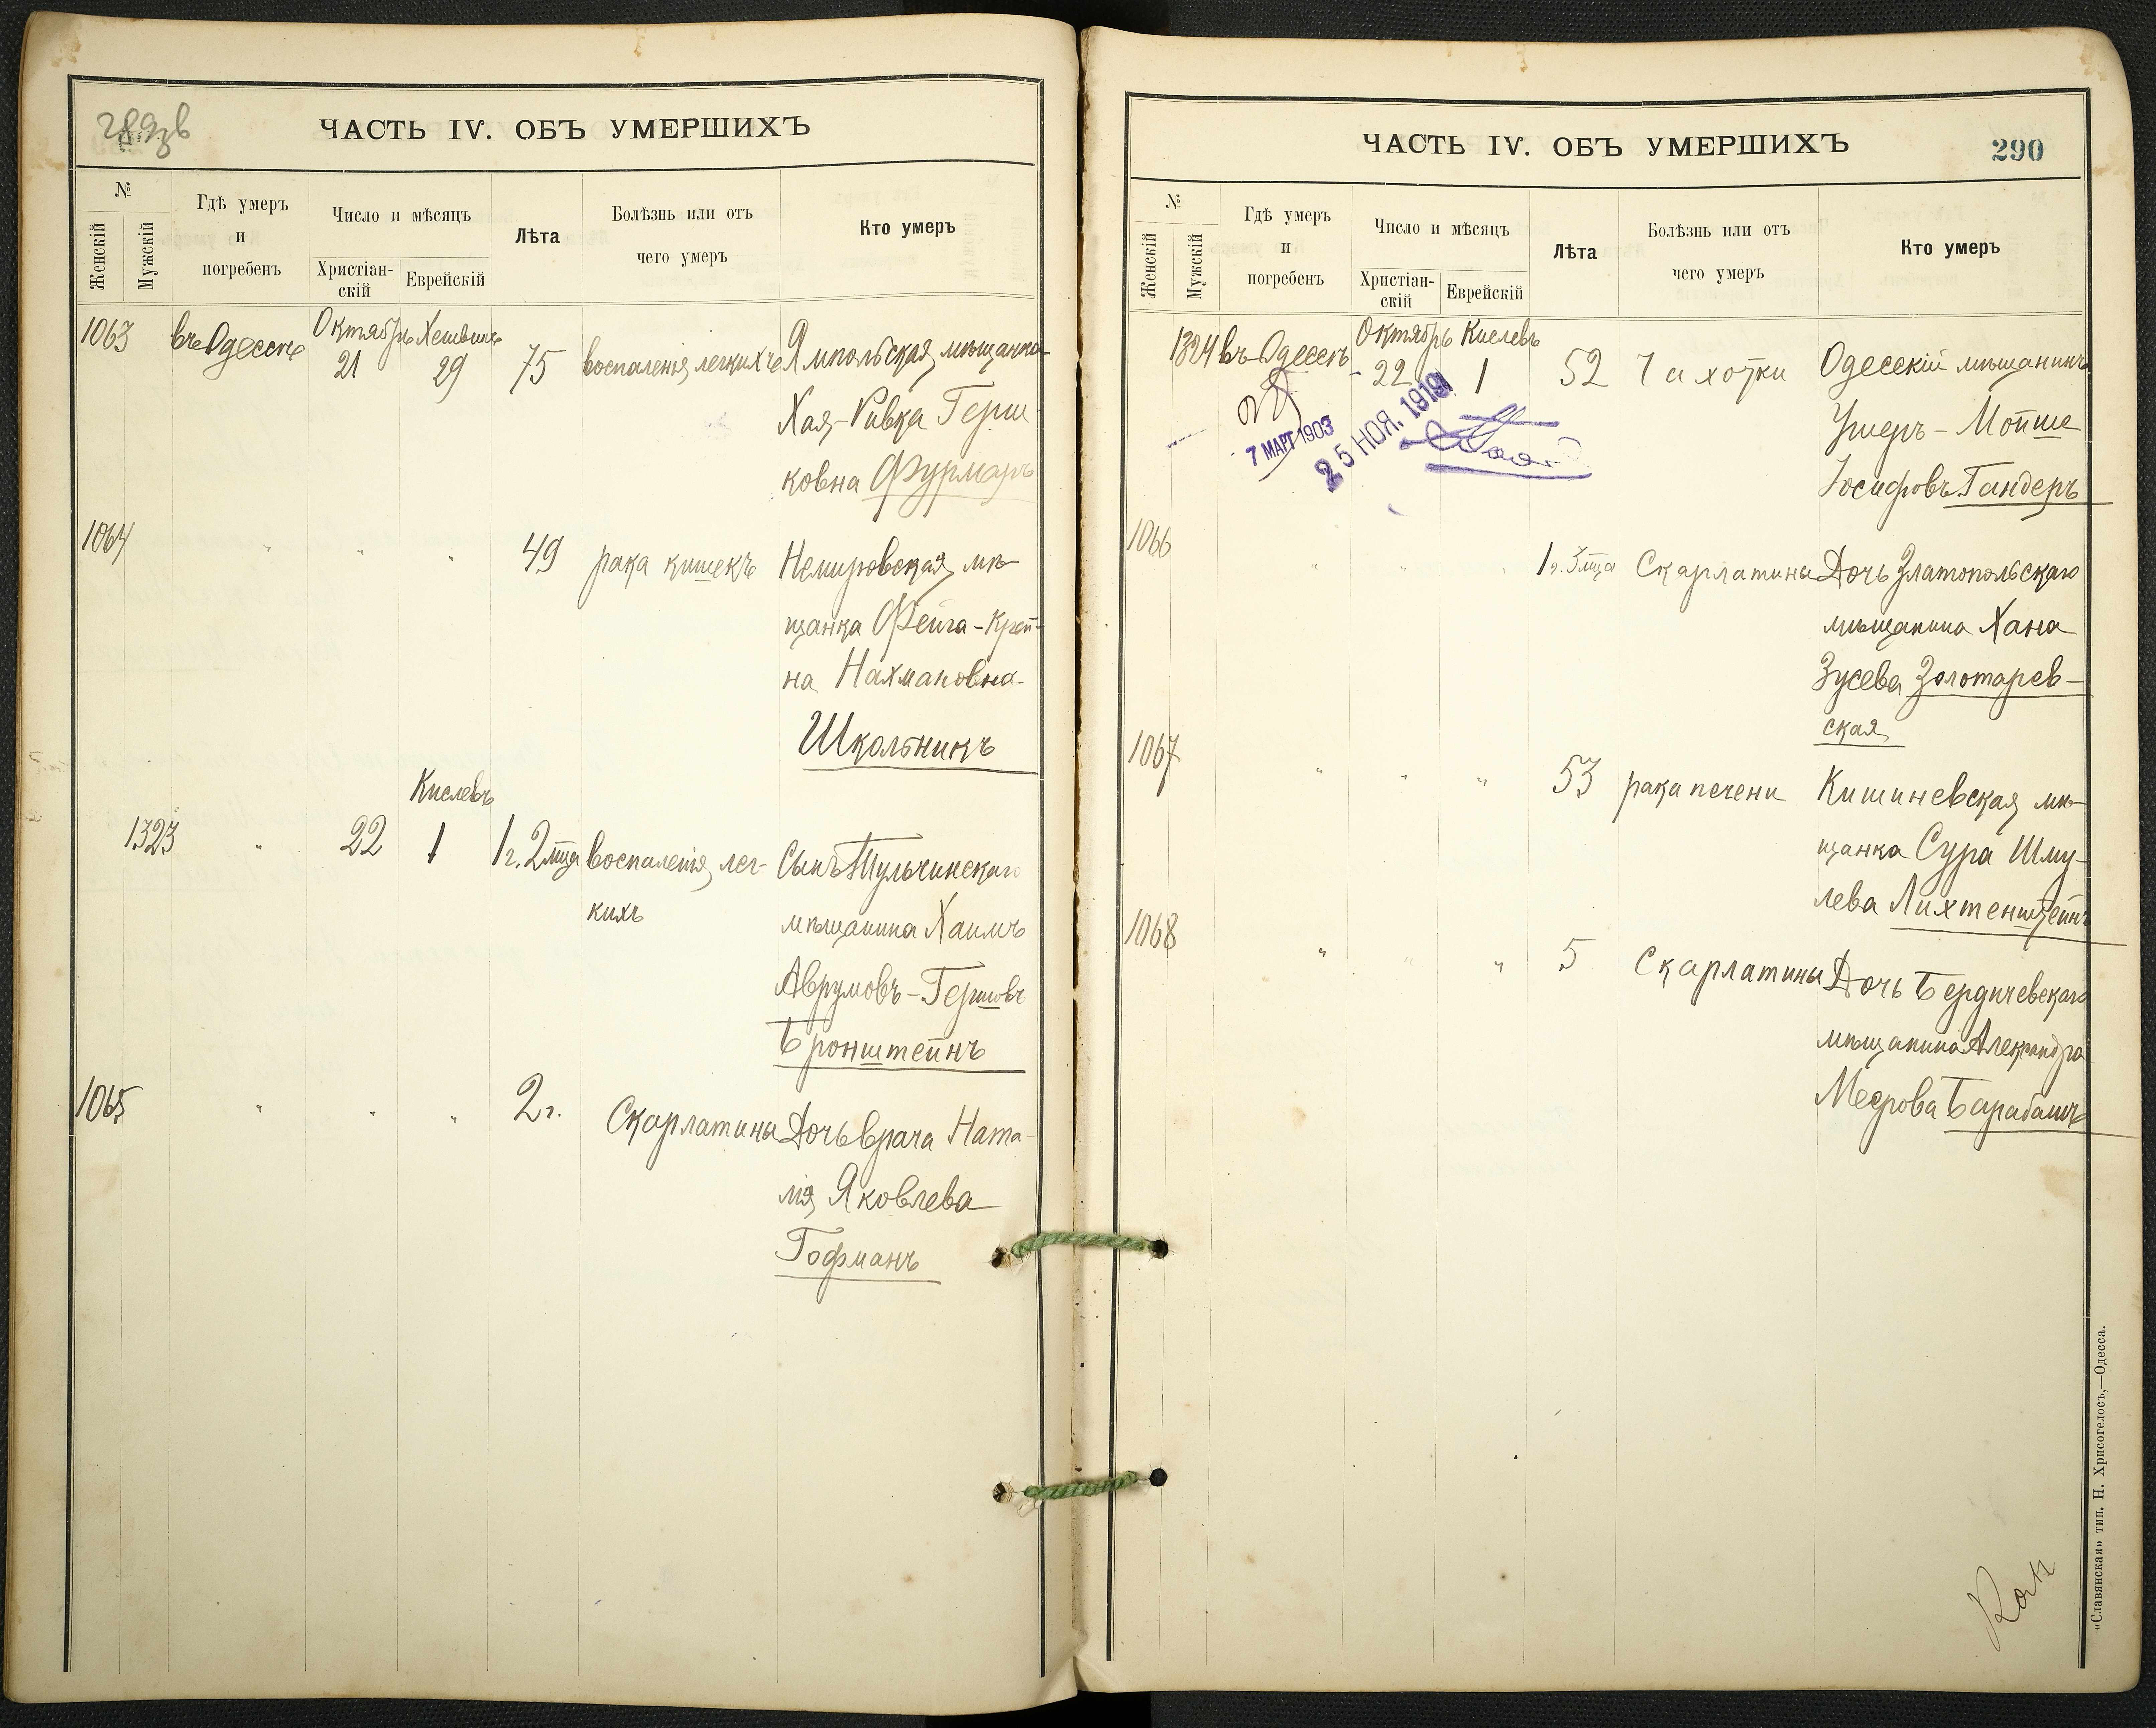 ЧАСТЬ IV. ОБЪ УМЕРШИХЪ
№
Женскій
Мужскій
Гдѣ умеръ
и
погребенъ
Число и мѣсяцъ
Христіан-
скій
Еврейскій
Лѣта
Болѣзнь или отъ
чего умеръ
Кто умеръ
1063 въ Одессѣ Октябрь Хешванъ
21 29 75 воспаленія легкихъ Ямпольская мѣщанка
Хая-Ривка Герш-
ковна Фурмаръ
1064 " " " 49 рака кишекъ Немировская мѣ-
щанка Фейга-Крей-
на Нахмановна
Школьникъ
Кислевъ
1323 " 22 1 1 г. 2 мца воспаленія лег- Сынъ Тульчинскаго
кихъ
мѣщанина Хаимъ
Аврумовъ-Гершовъ
Бронштейнъ
1065 " " " 2 г. Скарлатины Дочь врача Ната-
лія Яковлева
Гофманъ
ЧАСТЬ IV. ОБЪ УМЕРШИХЪ
290
№
Женскій
Мужскій
Гдѣ умеръ
и
погребенъ
Число и мѣсяцъ
Христіан-
скій
Еврейскій
Лѣта
Болѣзнь или отъ
чего умеръ
Кто умеръ
1324 въ Одессѣ Октябрь Кислевъ
22 1 52 Чахотки Одесскій мѣщанинъ
Ушеръ-Мойше
Іосифовъ Гандеръ
7 МАРТ 1903
25 НОЯ. 1919
1066 " " " 1 г. 3 мца Скарлатины Дочь Златопольскаго
мѣщанина Хана
Зусева Золотарев-
ская
1067 " " " 53 рака печени Кишиневская мѣ-
щанка Сура Шму-
лева Лихтенштейнъ
1068 " " " 5 Скарлатины Дочь Бердичевскаго
мѣщанина Александра
Меерова Барабашъ
«Славянская» тип. Н. Хрисогелосъ,—Одесса.